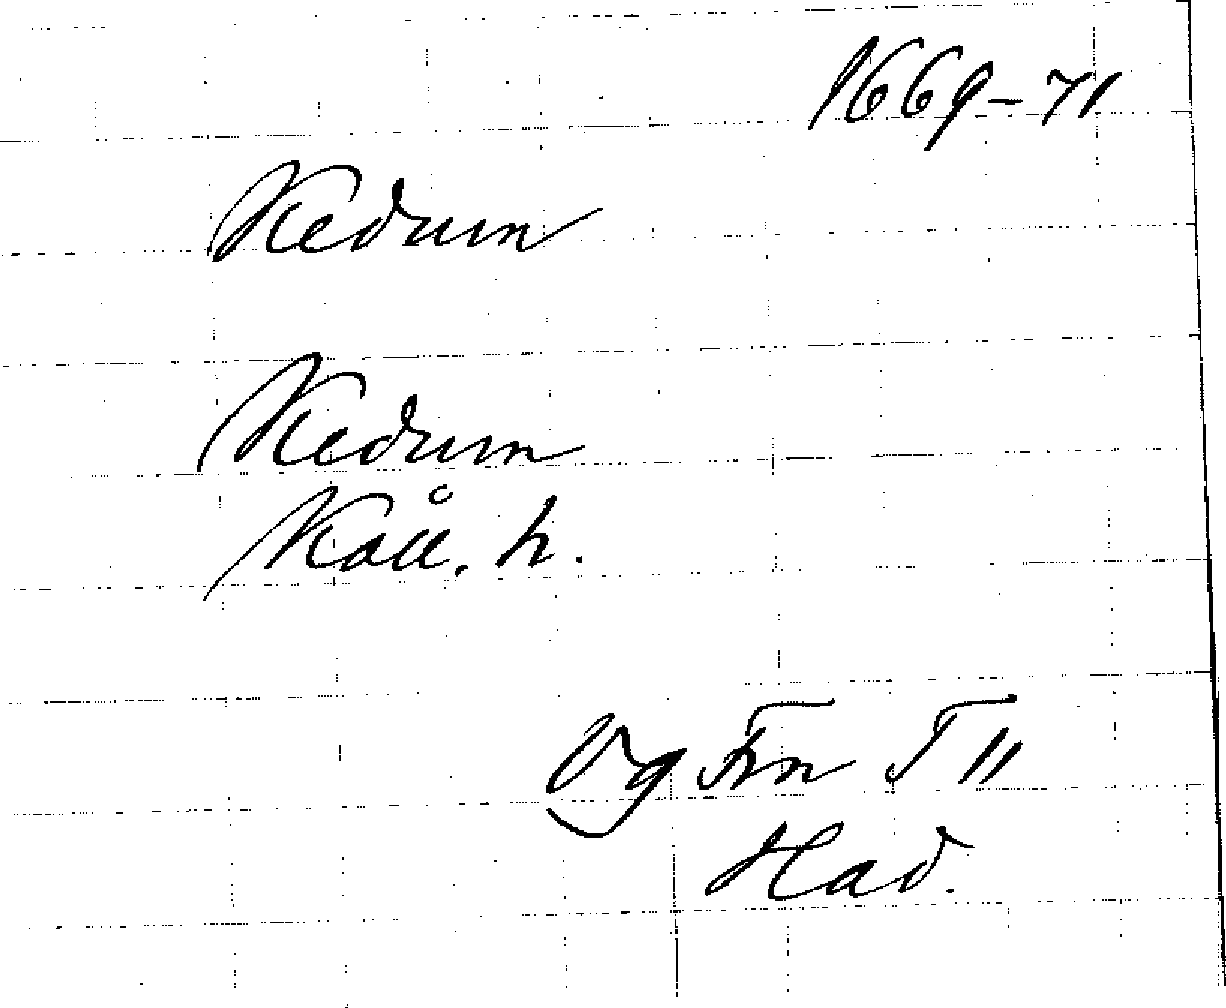 1669-71
Kedum
Kedum
Kåll. h.
Vg
Had.